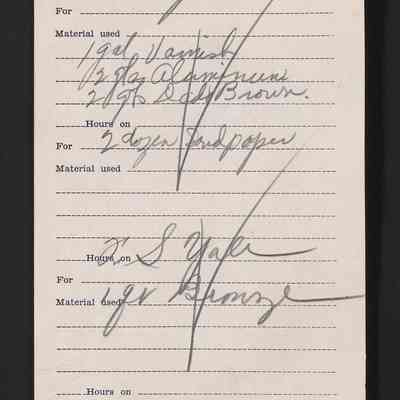 For
Material used
1 gal Varnish
2 qts Aluminum
2 qts Dads Brown.
Hours on
2 dozen Sandpaper
For
Material used
Hours on
S Yale
For
Material used
1 qt Bronze
Hours on